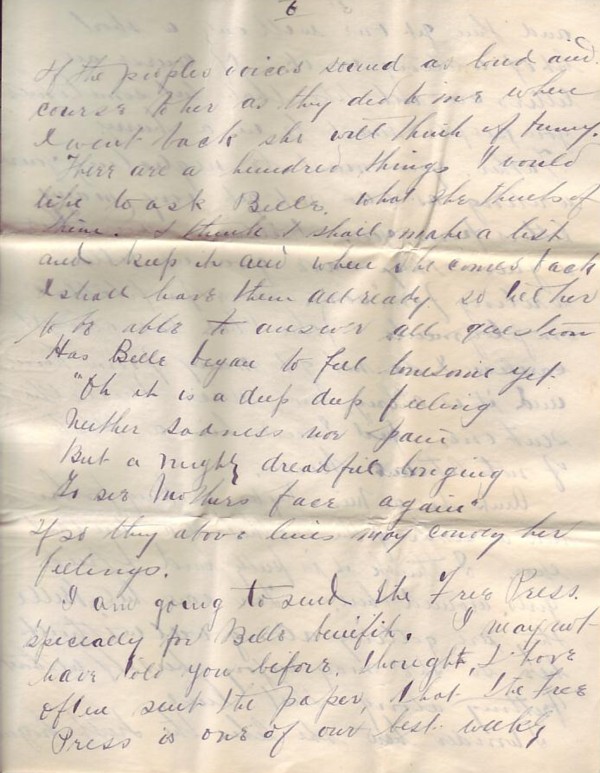 6
If the peoples voices sound as loud and
course to her as they did to me when
I went back she will think it funny.
There are a hundred things I would
like to ask Belle, what she thinks of
them. I think I shall make a list
and keep it and when she comes back
I shall have them all ready so tell her
to be able to answer all question
Has Belle began to feel lonesome yet
"Oh it is a deep deep feeling
Neither sadness nor pain
But a mighty dreadful longing
To see Mothers face again"
If so they above lines may convey her
feelings.
I am going to send the Free Press.
specially for Bells benifit. I may not
have told you before, thought, I have
often sent the paper, that the Free
Press is one of our best weekly